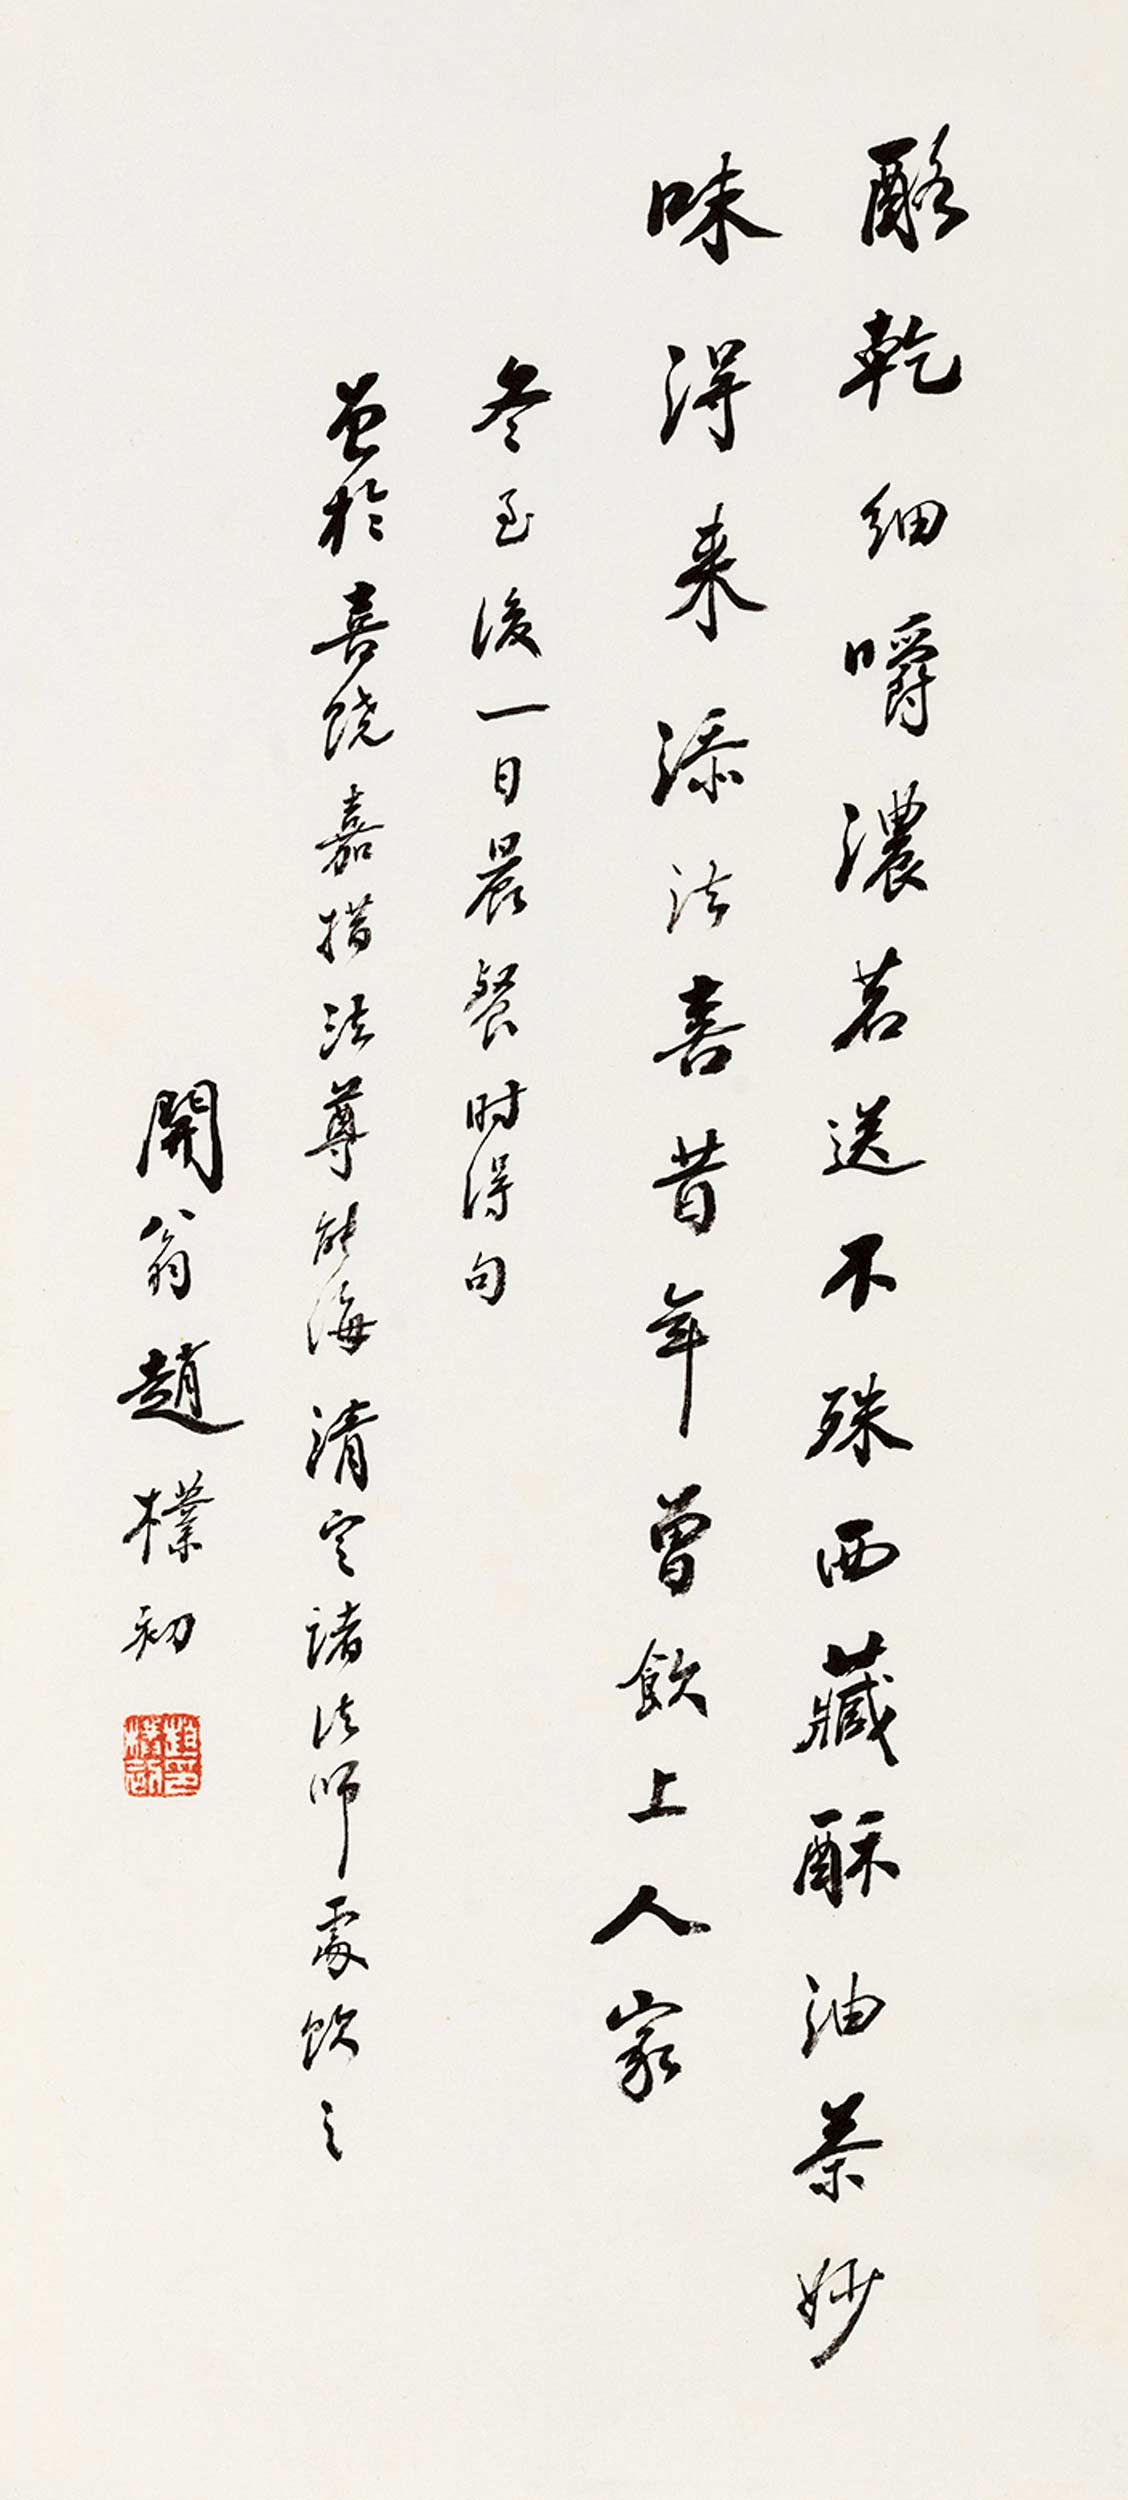 酪乾细嚼濃茗送不殊西藏酥油茶妙
味得来添法喜昔年曾飲上人家
冬至後一日晨餐时得句
曾於喜饶嘉措法尊能海清定諸法师處饮之
開翁趙樸初
趙樸初印